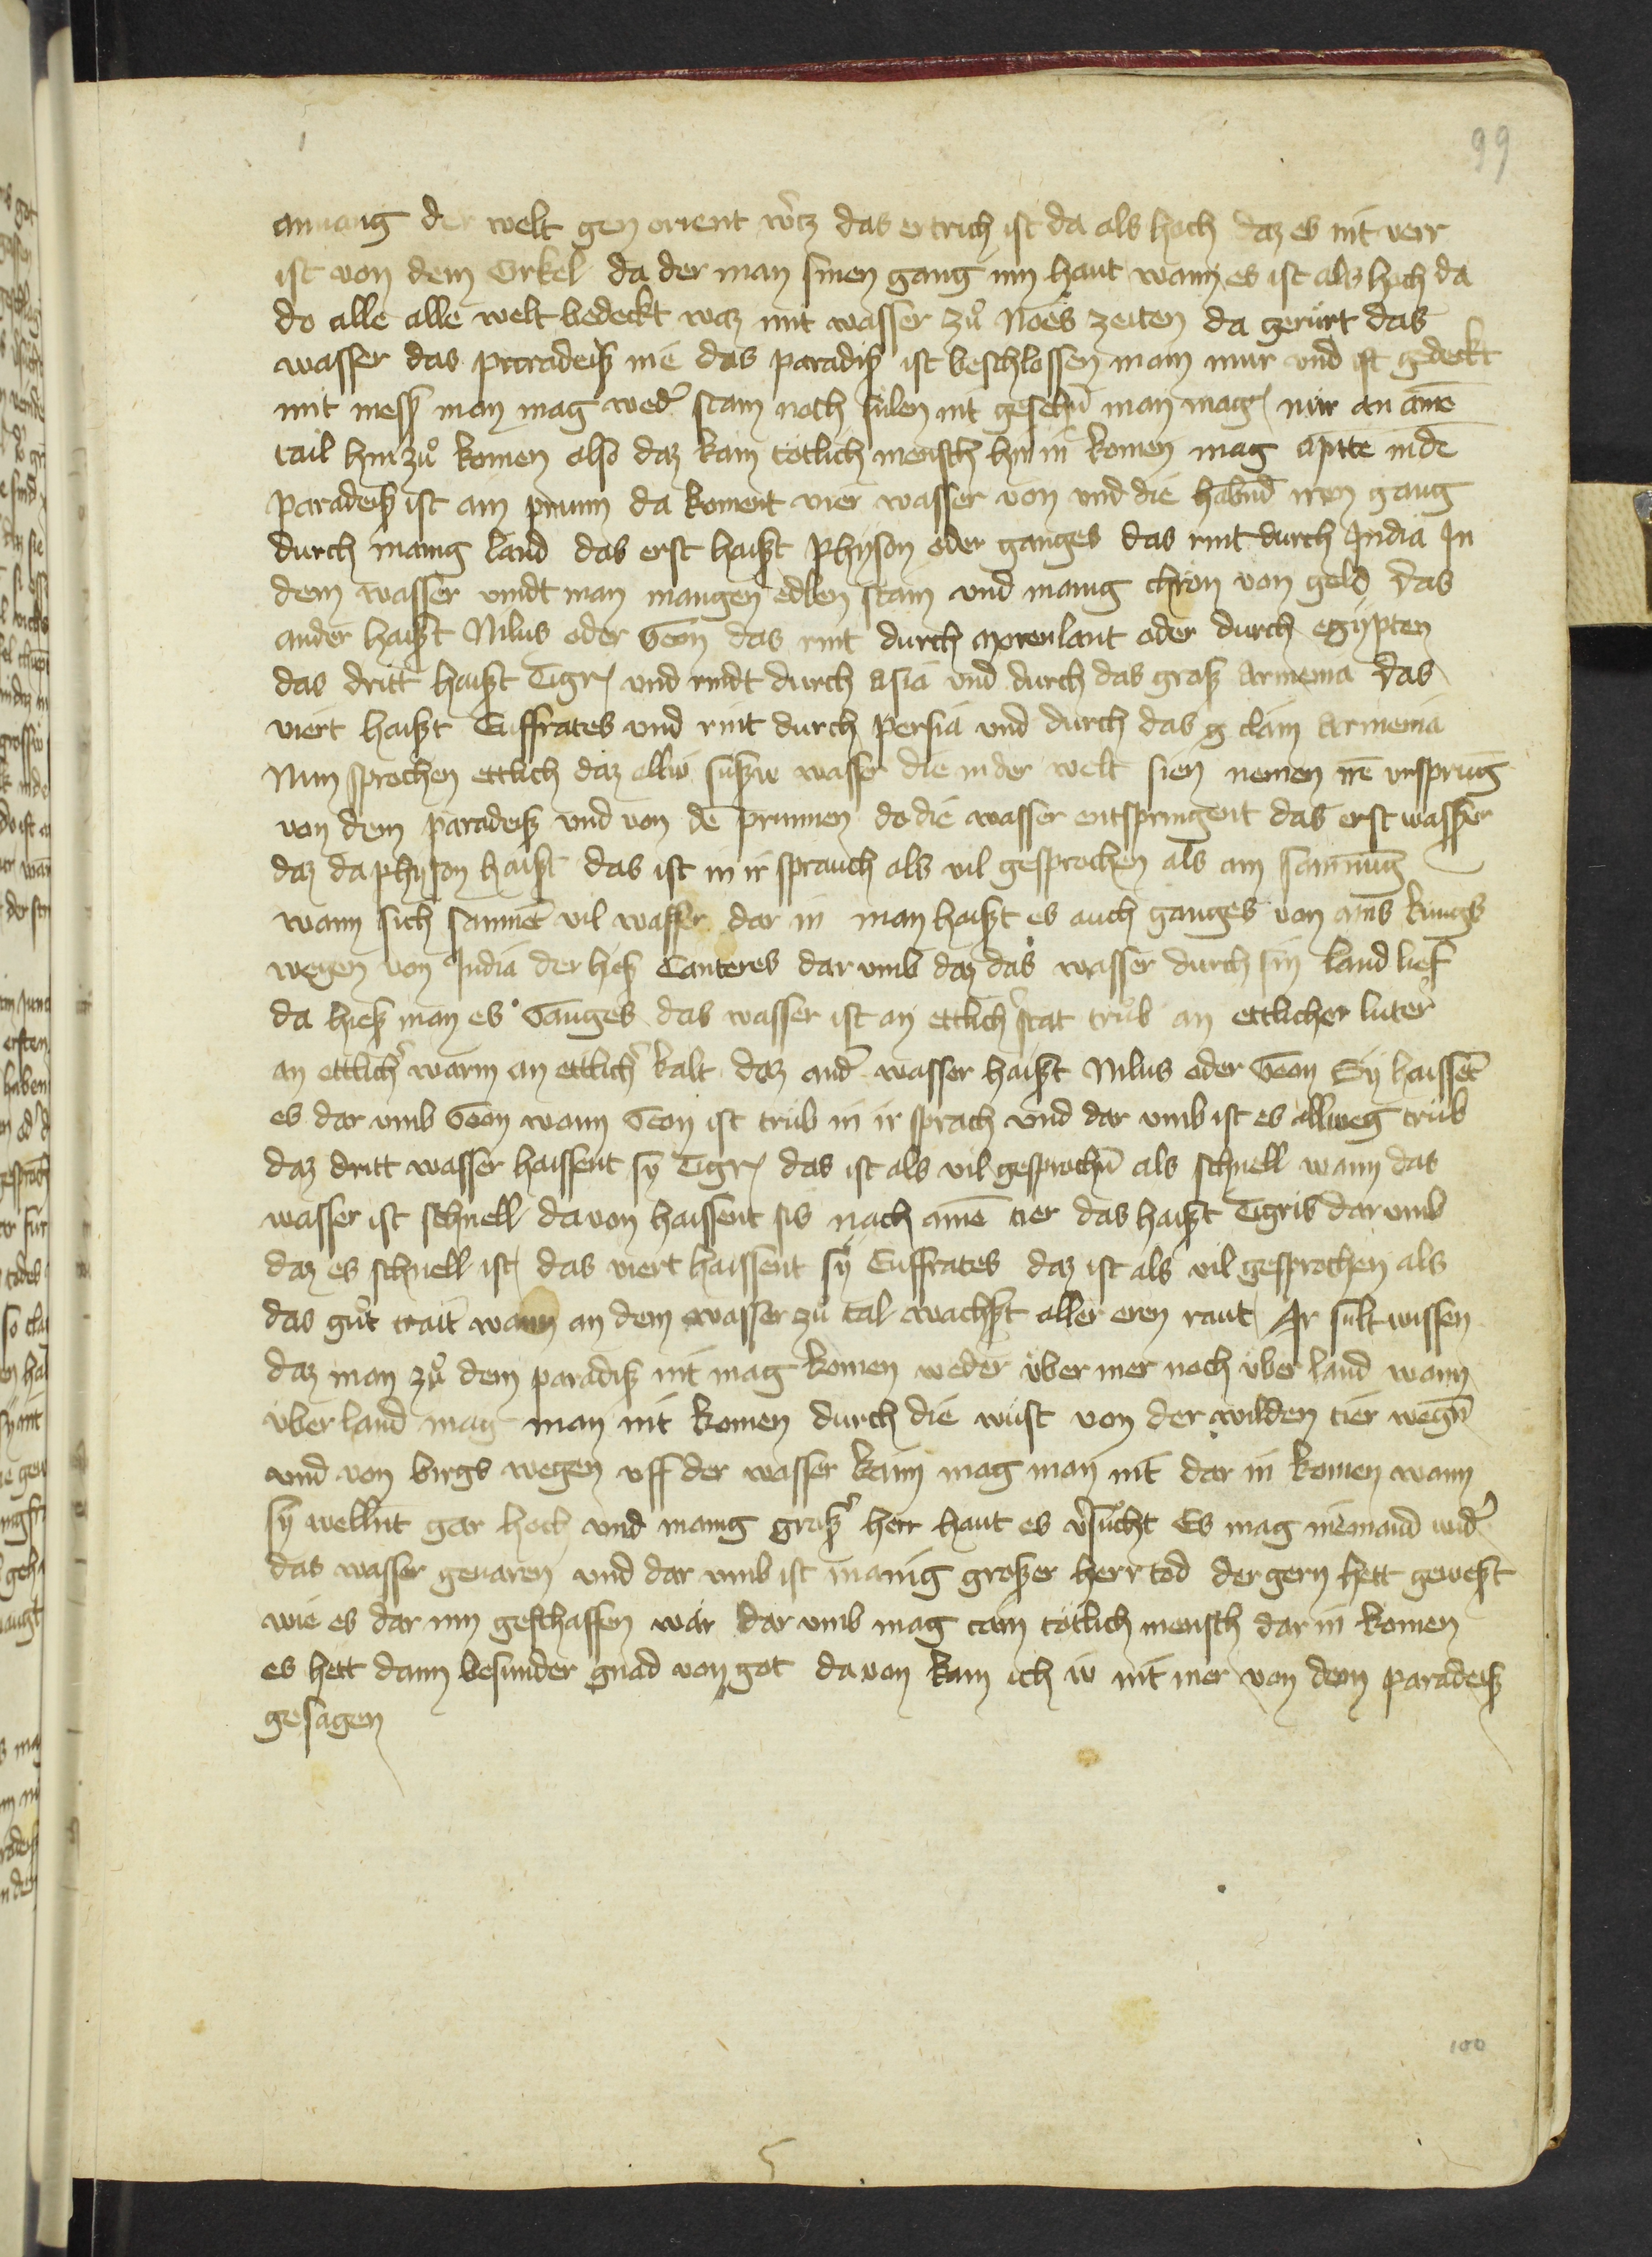 99
anuang der welt gen orient wͬcz das ertrich ist da als hoch daz es nit verr
ist von dem Cirkel da der man sinen gang inn haut wann es ist als hoch da
do alle alle welt bedeckt waz mit wasser zuͦ Noes zeiten da gerürt das
wasser das paradeiß nie das paradiß ist beschlossen main mur vnd ist gedeckt
mit mess man mag wedͬ stain noch sülen nit gesehn̄ man mag nür an aine̅
tail hin zuͦ komen also daz kain tötlich mensch hin in komen mag enmitte inde̅
paradeiß ist ain prunn da koment vier wasser von vnd die habnd iren gang
durch manig land das erst haißt Physon oder ganges das rint durch India In
dem wasser vindt man mangen edlen stain vnd manig chron von gold das
ander haißt Nilus oder Geon das rint durch morenlant oder durch egypten
das dritt haißt Tigris vnd rindt durch Asia vnd durch das groß Armenia das
viert haißt Euffrates vnd rint durch Persia vnd durch das g clain Armenia
Nun sprechen ettlich daz alliv süßiv wasser die in der welt sien nemen ire̅ vrsprūg
von dem paradeiß vnd von de̅ prunnen do die wasser entspringent das erst wasser
daz da physon haißt das ist in ir sprauch als vil gesprochen als ain samnūg
wann sich samnēt vil wasser dar in man haißt es auch ganges von ains kungs
wegen von India der hieß Canteres dar vmb daz das wasser durch sin land lief
da hieß man es Ganges das wasser ist an ettlichͬ stat trüb an ettlicher luter
an ettlichͬ warm an ettlichͬ kalt daz andͬ wasser haißt Nilus oder Geon Sy haissēt
es dar vmb Geon wann Geon ist trüb in ir sprach vnd dar vmb ist es allweg trüb
daz dritt wasser haissent sy Tigris das ist als vil gesprochn̄ als schnell wann das
wasser ist schnell da von haissent sis nach aine̅ tier das haißt Tigris dar vmb
daz es schnell ist das viert haissent sy Euffrates daz ist als vil gesprochen als
das guͦt trait wann an dem wasser zuͦ tal wachßt aller eren raut Ir sült wissen
daz man zuͦ dem paradiß nit mag komen weder über mer noch über land wann
über land mag man nit komen durch die wüst von der wilden tier wegn̄
vnd von birgs wegen vff der wasser kain mag man nit dar in komen wann
sy wellnt gar hoch vnd manig großͬ herr haut es vͬsuͦcht Es mag niemand widͬ
das wasser geuaren vnd dar vmb ist manig großer herr tod der gern hett gewest
wie es dar inn geschaffen wär dar vmb mag cain tötlich mensch dar in komen
es hett dann besunder gnad von got da von kan ich iv nit mer von dem paradeiß
gesagen
100